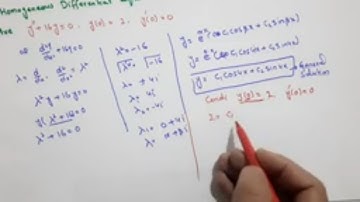 Homogeneous Differential
y''+16y=0, y(0)=2, y'(0)=0
d²y/dx² +16y=0
λ = d/dx, d²/dx² = λ²
λ²y+16y=0
y(λ²+16)=0
λ²+16=0
λ²=-16
√λ² = √-16
λ = ±4i
λ₁=4i
λ₂=-4i
λ = 0±4i
y = e^αx (c₁cosβx + c₂sinβx)
y = e^0x (c₁cos4x + c₂sin4x)
y = c₁cos4x + c₂sin4x → General Solution
y(0)=2 y'(0)=0
2 = c